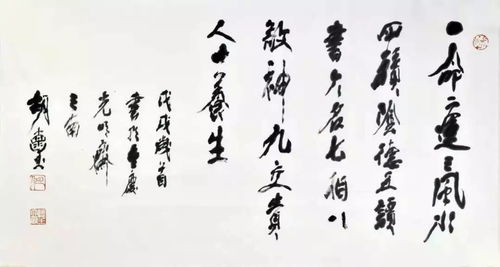 一命二運三風水
四積陰德五讀
書六名七相八
敬神九交貴
人十養生
戊戌歲首
書於重慶
之南
胡